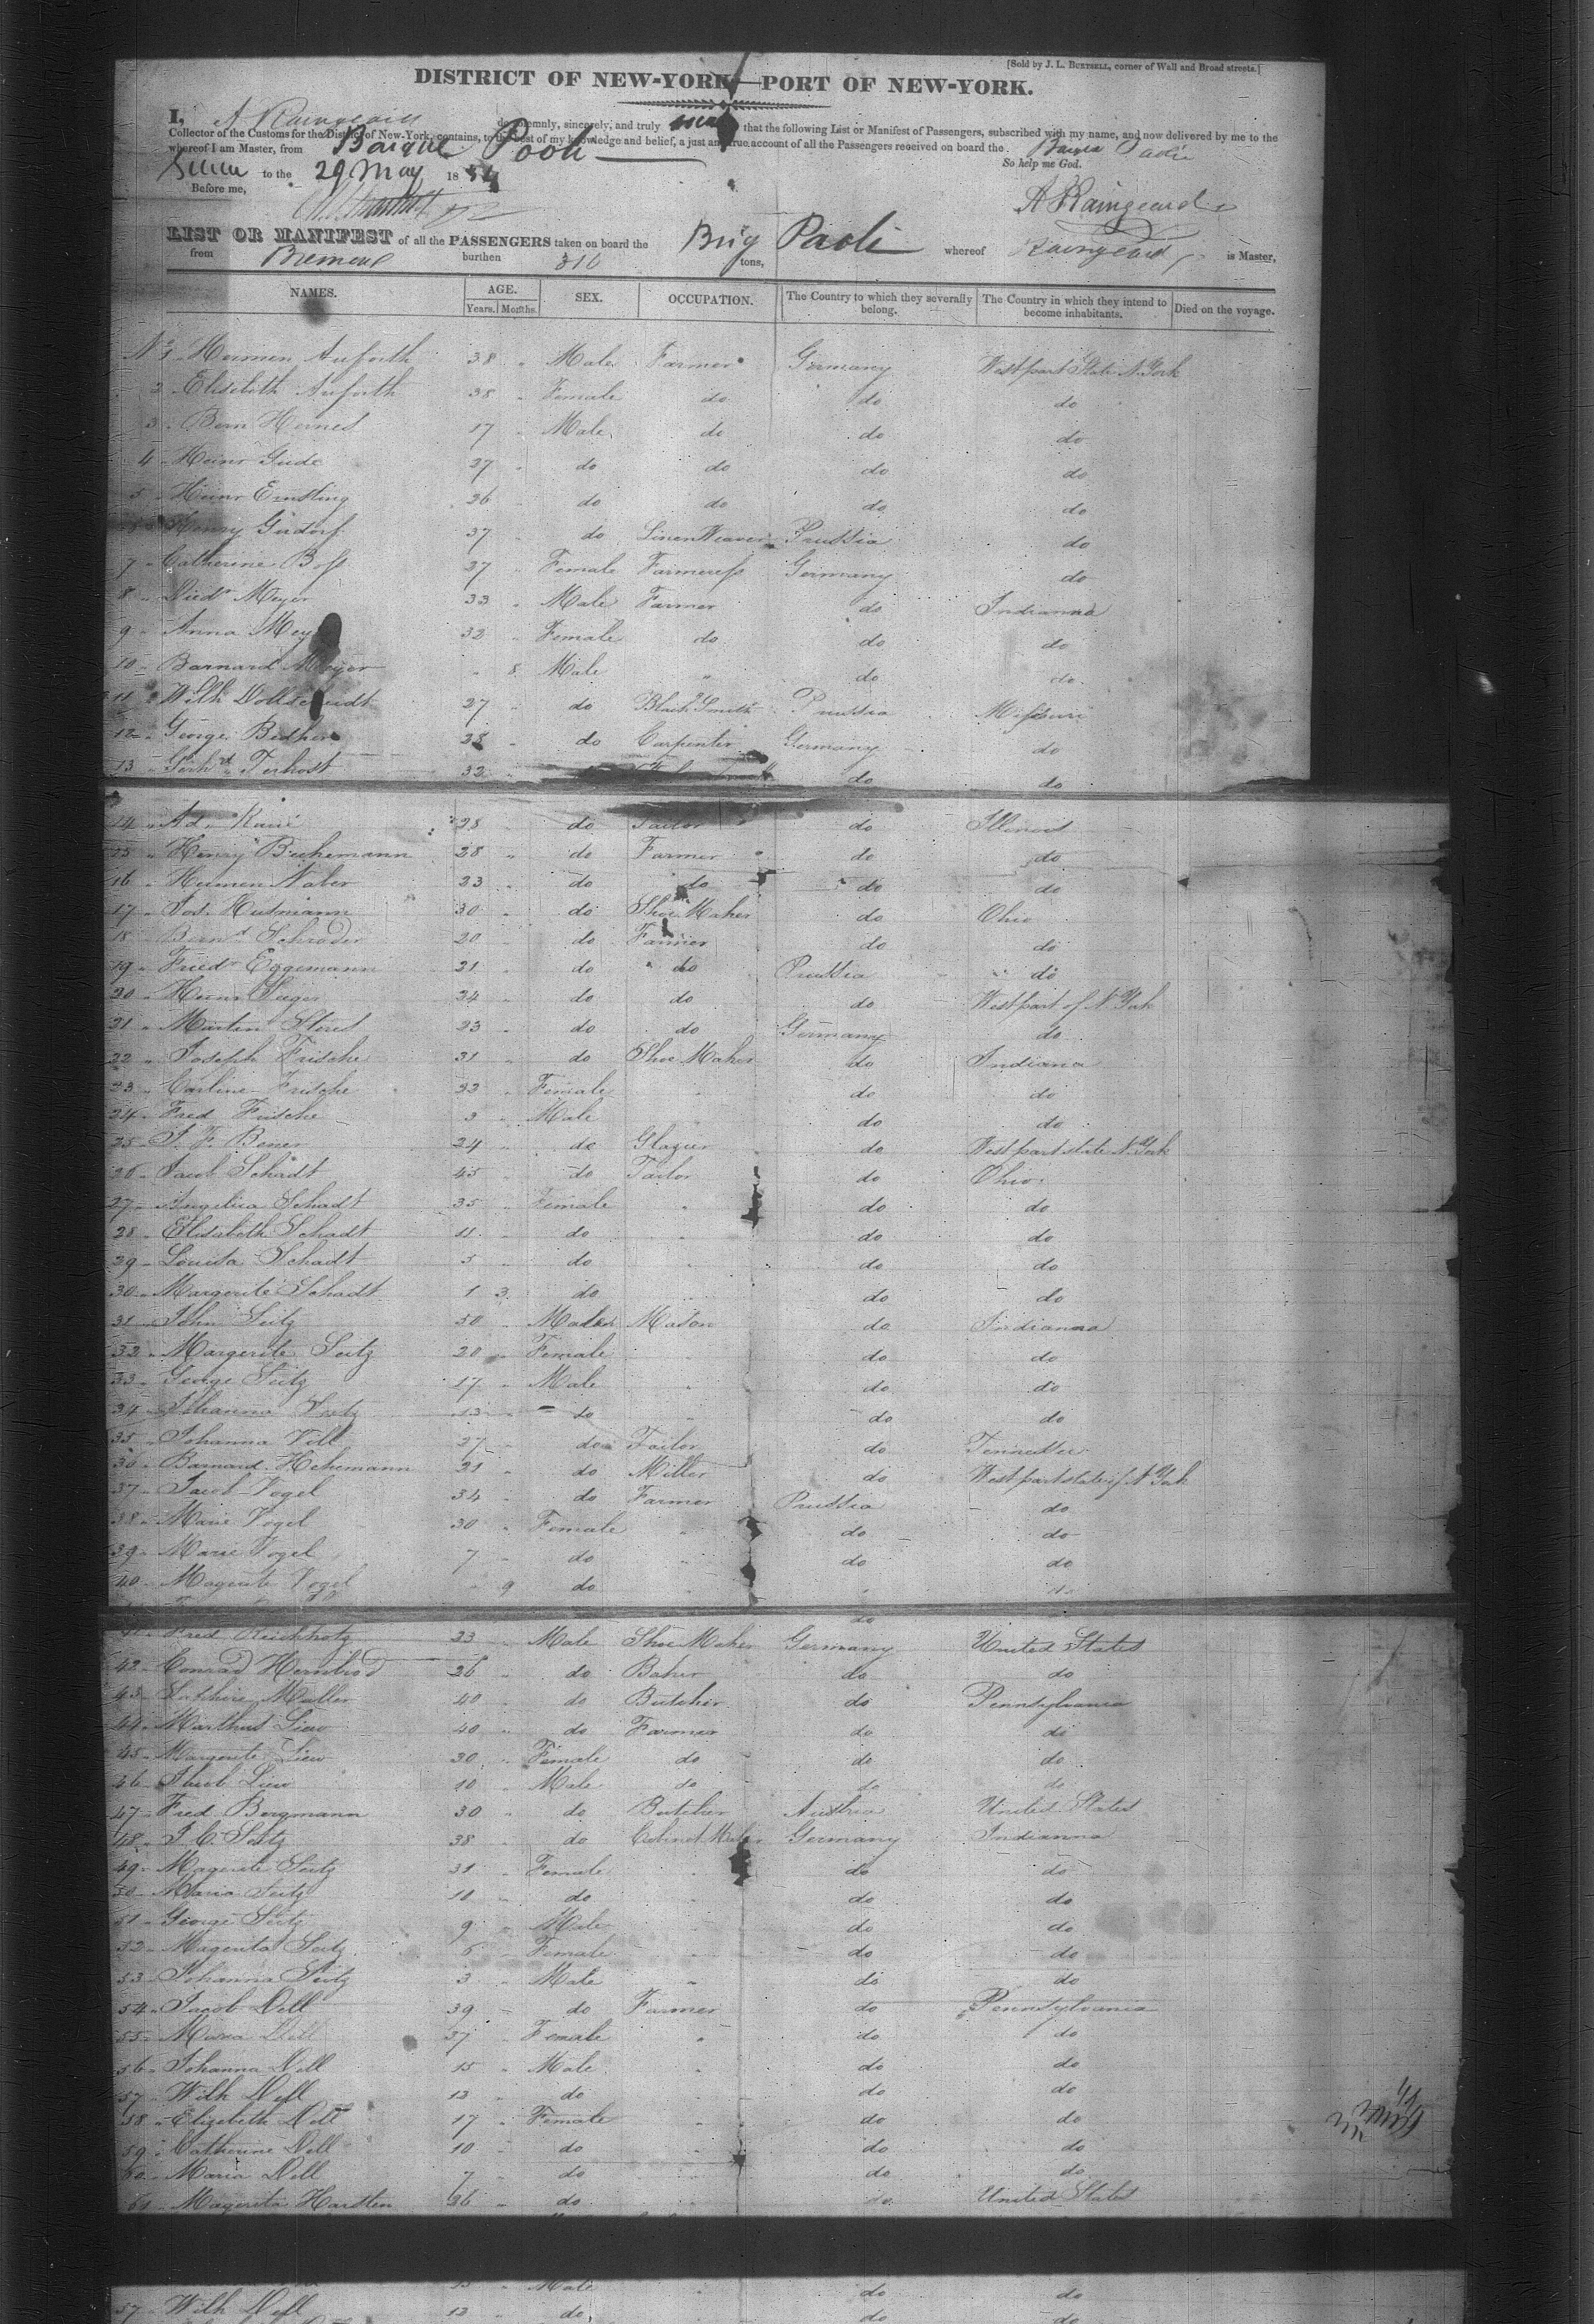 [Sold by J. L. BURTSELL, corner of Wall and Broad streets.]
DISTRICT OF NEW-YORK—PORT OF NEW-YORK.
I, do solemnly, sincerely, and truly swear that the following List or Manifest of Passengers, subscribed with my name, and now delivered by me to the
Collector of the Customs for the District of New-York, contains, to the best of my knowledge and belief, a just and true account of all the Passengers received on board the
whereof I am Master, from
So help me God.
to the 29 May 18
Before me,
LIST OR MANIFEST of all the PASSENGERS taken on board the Brig Paoli whereof is Master,
from burthen 316 tons,
NAMES. AGE. Years. Months. SEX. OCCUPATION. The Country to which they severally belong. The Country in which they intend to become inhabitants. Died on the voyage.
No 1 Hermen Anforth 38 Male Farmer Germany West part State N. York
2 Elisebeth Anforth 38 Female do do do
3 Bern Hernes 17 Male do do do
4 Heinr Gude 27 do do do do
5 Heinr Ernsting 26 do do do do
6 Henry Gerdorf 37 do Linen Weaver Prussia do
7 Catherine Boss 27 Female Farmeress Germany do
8 Diedr Meyer 33 Male Farmer do Indianna
9 Anna Meyer 32 Female do do do
10 Barnard Meyer 8 Male do do
11 Wilh 27 do Black Smith Prussia Missouri
12 George 28 do Carpenter Germany do
13 Gerhd Terhost 32 do do
14 Ad. 28 do Tailor do Illinois
15 Henry Buhemann 28 do Farmer do do
16 Hermen Naber 23 do do do do
17 Jos. Hutmann 30 do Shoe Maker do Ohio
18 Bernd Schrader 20 do Farmer do do
19 Friedr Eggemann 21 do do Prussia do
20 Heinr Seeger 24 do do do West part of N. York
21 Martin 23 do do Germany do
22 Joseph Fritsche 31 do Shoe Maker do Indiana
23 Carline Fritsche 22 Female do do
24 Fred Fritsche 3 Male do do
25 J. F. Bener 24 do Glazier do West part state N. York
26 Jacob Schadt 45 do Tailor do Ohio
27 Angelica Schadt 35 Female do do
28 Elisabeth Schadt 11 do do do
29 Louisa Schadt 5 do do do
30 Margerite Schadt 1 3 do do do
31 John Seitz 50 Male Mason do Indianna
32 Margerite Seitz 20 Female do do
33 George Seitz 17 Male do do
34 Johanna Seitz 13 do do do
35 Johanna Voll 27 do Tailor do Tennessee
36 Barnard Hehemann 21 do Miller do West part state of N. York
37 Jacob Vogel 34 do Farmer Prussia do
38 Marie Vogel 30 Female do do
39 Marie Vogel 7 do do do
40 Magerite Vogel 9 do
41 Fred Reichhotz 23 Male Shoe Maker Germany United States
42 Conrad Hernbrod 26 do Baker do do
43 Muller 40 do Butcher do Pennsylvania
44 Marthus Liew 40 do Farmer do do
45 Margerite Liew 30 Female do do do
46 Jacob Liew 10 Male do do do
47 Fred Bergmann 30 do Butcher Austria United States
48 J. C. Seitz 38 do Cabinet Maker Germany Indianna
49 Magerite Seitz 31 Female do do
50 Maria Seitz 10 do do do
51 George Seitz 9 Male do do
52 Magerita Seitz 6 Female do do
53 Johanna Seitz 3 Male do do
54 Jacob Dell 39 do Farmer do Pennsylvania
55 Maria Dell 37 Female do do
56 Johanna Dell 15 Male do do
57 Wilh Dell 12 do do do
58 Elizebeth Dell 17 Female do do
59 Catherine Dell 10 do do do
60 Maria Dell 7 do do do
61 Magerita Harsten 26 do do United States
15 Male do do
57 Wilh Dell 12 do do do